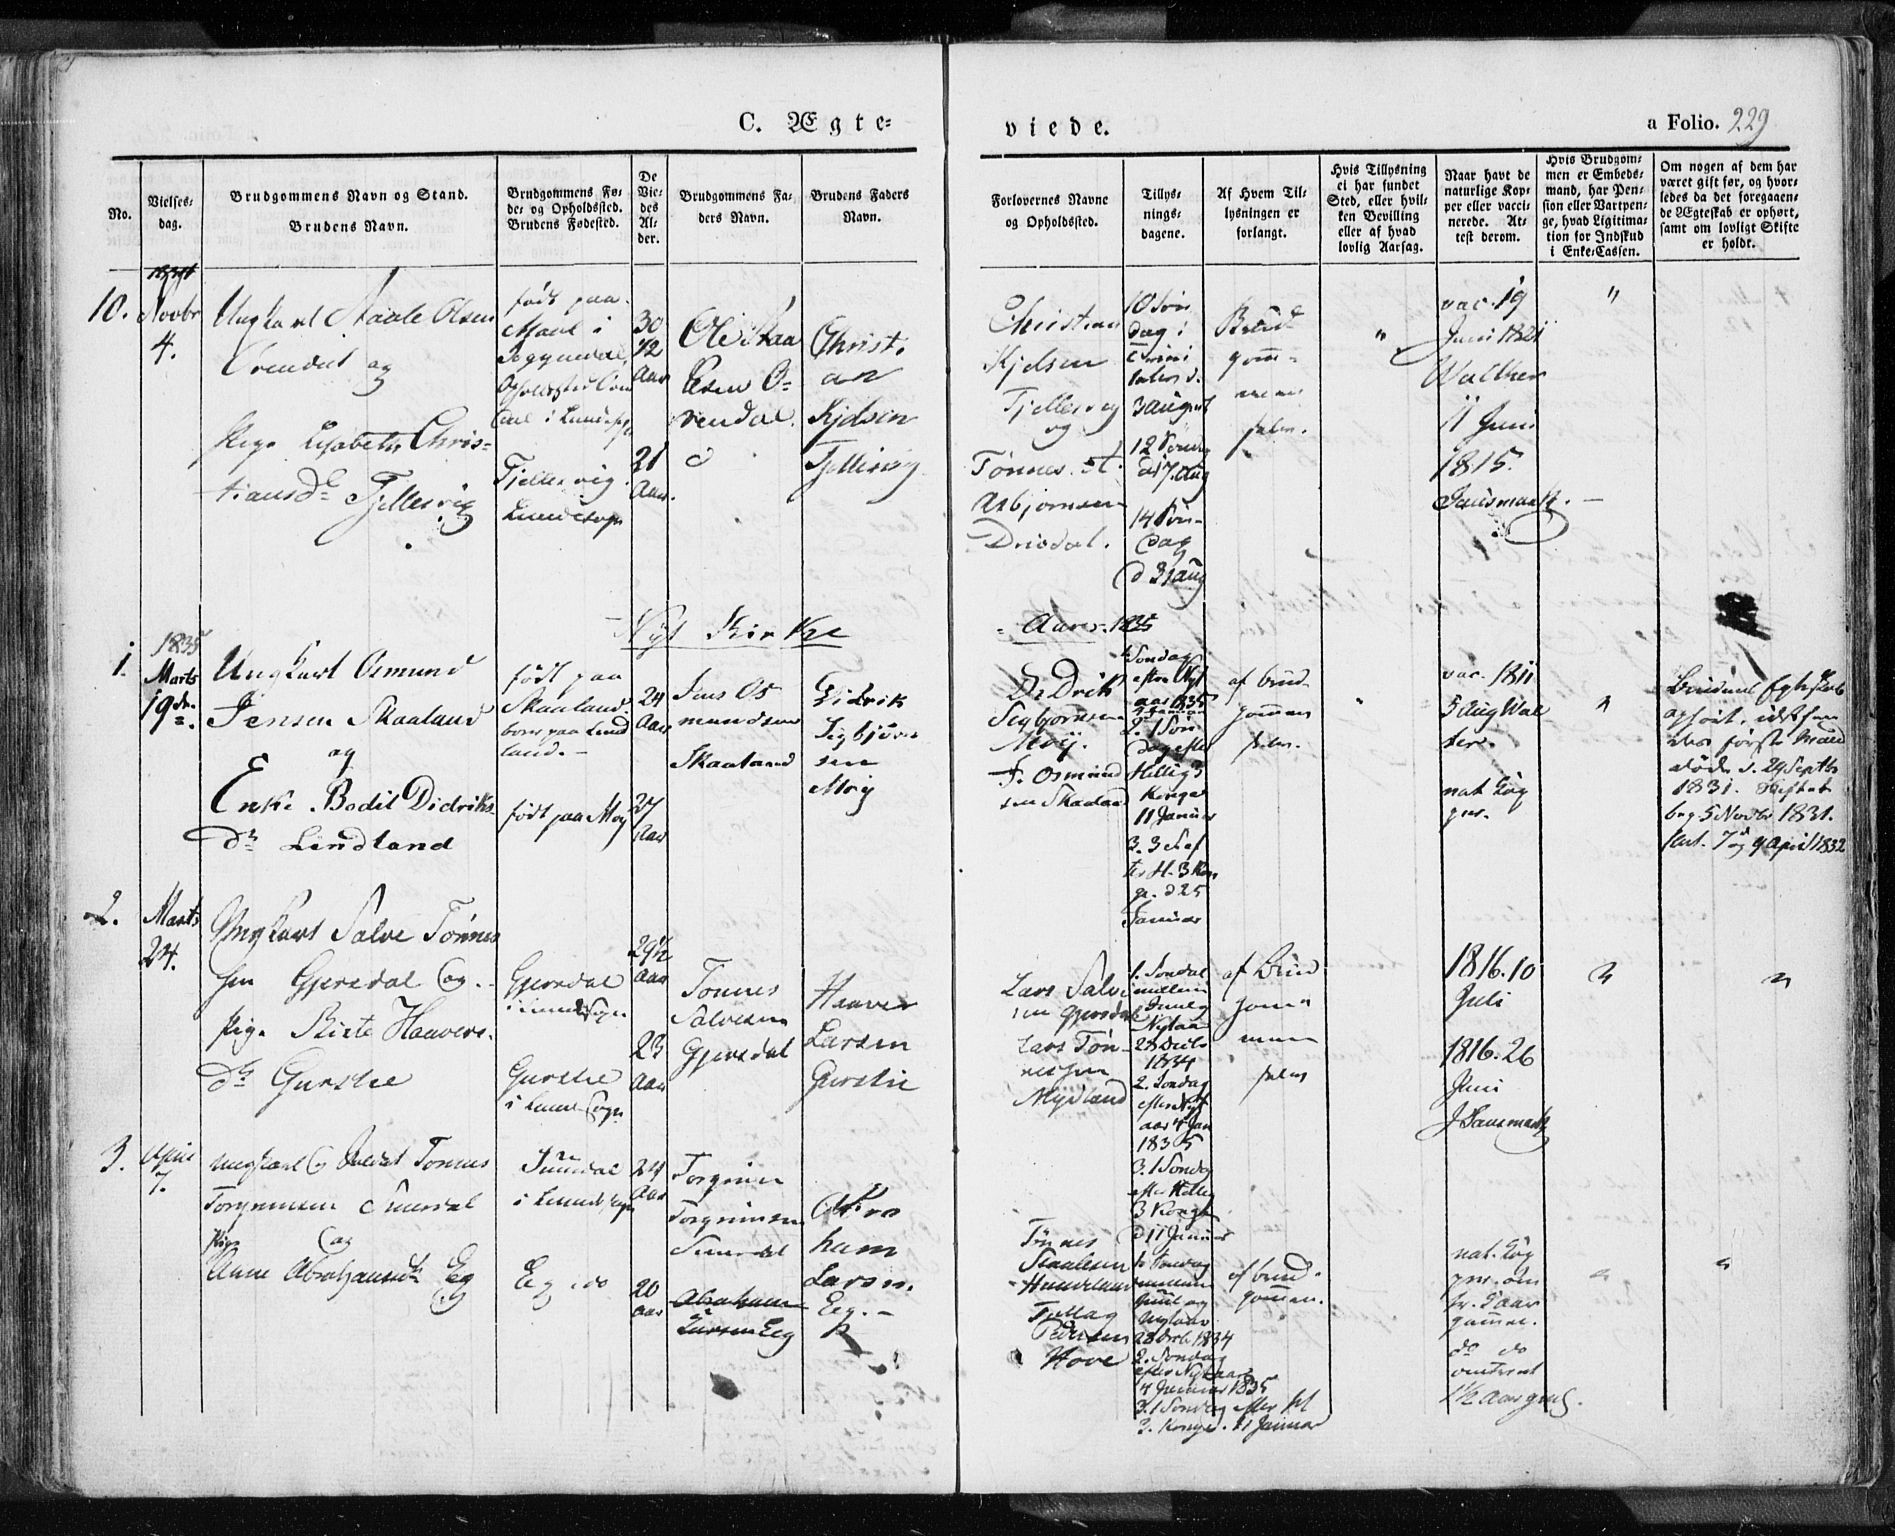 C. Ægte-
viede.
a Folio. 229
No.
Vielses-
dag.
Brudgommens Navn og Stand.
Brudens Navn.
Brudgommens Fø-
de- og Opholdssted.
Brudens Fødested.
De
Vie-
des
Al-
der.
Brudgommens Fa-
ders Navn.
Brudens Faders
Navn.
Forlovernes Navne
og Opholdssted.
Tillys-
nings-
dagene.
Af Hvem Til-
lysningen er
forlangt.
Hvis Tillysning
ei har fundet
Sted, eller hvil-
ken Bevilling
eller af hvad
lovlig Aarsag.
Naar havt de
naturlige Kop-
per eller vacci-
nerede. At-
test derom.
Hvis Brudgom-
men er Embeds-
mand, har Pen-
sion eller Vartpen-
ge, hvad Ligitima-
tion for Indskud
i Enke-Cassen.
Om nogen af dem har
været gift før, og hvor-
ledes da det foregaaen-
de Ægteskab er ophørt,
samt om lovligt Skifte
er holdt.
10.
Novbr
4.
Ungkarl Staale Olsen
og
Pige Lisabeth Chris-
tiansdr Fjellesvig
født paa
i
Fjellesvig
Lundesogn
30
1/2
Aar
21
Aar.
Ole Staa
lesen
Christi
an
Kjelsen
Fjellesvig
Christian
Kjelsen
Fjellesvig
og
Tønnes
Asbjørnsen
Drivdal.
10 Søn
dag i
Trini
tatis d.
3 August
12 Sønd
d 17 Aug
14 Søn-
dag
d 31 Aug
Brud
gom-
men
selv.
"
vac. 19
Juni 1821
Walther
11 Juni
1815.
Dausmark.
"
Nyt Kirke
Aaret 1835
1.
1835
Marts
19de
Ungkarl Osmund
Jensen Skaaland
og
Enke Bodil Didriks-
dr Lindland
født paa
Skaaland.
boer paa Lind
land.
født paa Moy
24
Aar
27
Aar
Jens Os
mundsen
Skaaland
Didrik
Sigbjørn
sen
Moy
Didrik
Segbjørnsen
Moy.
J. Osmund
sen Skaaland
1 Søndag
efter Nyt
aar 1835
4 Januar
2. 1 Søn
dag efter
Hellig 3
Konger
11 Januar
3. 3 S. ef
ter H. 3 Kon
ge. d 25
Januar
af brud
gommen
selv.
"
vac. 1811
5 Aug Wal
ther.
nat. Kop
per.
"
første Mand
døde d. 29 Septbr
1831. Skiftet
beg 5 Novbr 1831.
slut. 7 og 9 April 1832
2.
Marts
24.
Ungkarl Salve Tønnes
sen Gjersdal og
Pige Birte Haavers
dr Gurstie
Gjersdal
i Lundesogn
Gurstie
i Lunde Sogn
29 1/2
Aar
23
Aar
Tønnes
Salvesen
Gjersdal
Haaver
Larsen
Gurstie
Lars Salve
sen Gjersdal
Lars Tøn-
nessen
Mydland
1. Søndag
mellem
Juul og
Nytaar
28 Decbr
1834
2. Søndag
efter Nyt
aar 4 Jan
1835
3. 1 Søndag
efter Hellig
3 Konger
d 11 Januar
af Brud
gom
men
selv
1816. 10
Juli
1816. 26
Juni
J Dausmark
"
"
3.
April
7.
Ungkarl og Soldat Tønnes
Torgrimsen Surdal
Pige og
Anne Abrahamsdr Eeg
Surdal
i Lunde Sogn
Eeg do
24
Aar
20
Aar
Torgrim
Torgrimsen
Surdal
Abraham
Larsen Eeg
Abra
ham
Larsen
Eeg.
Tønnes
Staalesen
Tjellag
Pedersen
Hove
1. Søndag
mellem
Juul og
Nytaar
28 Decb 1834
2. Søndag
efter Nytaar
4 Januar 1835
3. 1 Søndag efter H
3. Konge. 11 Januar
af brud-
gommen.
nat. Kop
per om
tr. 2 aar
gammel.
do do
omtrent
1 1/2 Aar gml.
"
"